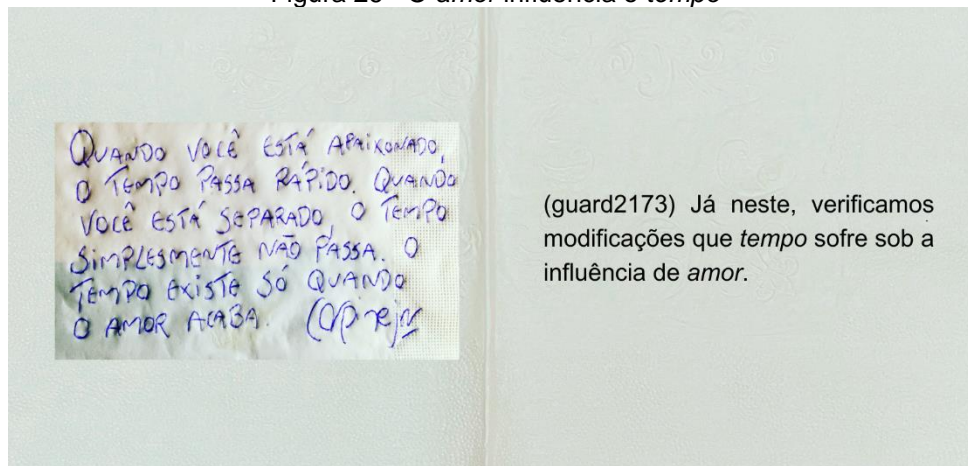 QUANDO VOCÊ ESTÁ APAIXONADO,
O TEMPO PASSA RÁPIDO. QUANDO
VOCÊ ESTÁ SEPARADO, O TEMPO
SIMPLESMENTE NÃO PASSA. O
TEMPO EXISTE SÓ QUANDO
O AMOR ACABA.
(guard2173) Já neste, verificamos
modificações que tempo sofre sob a
influência de amor.